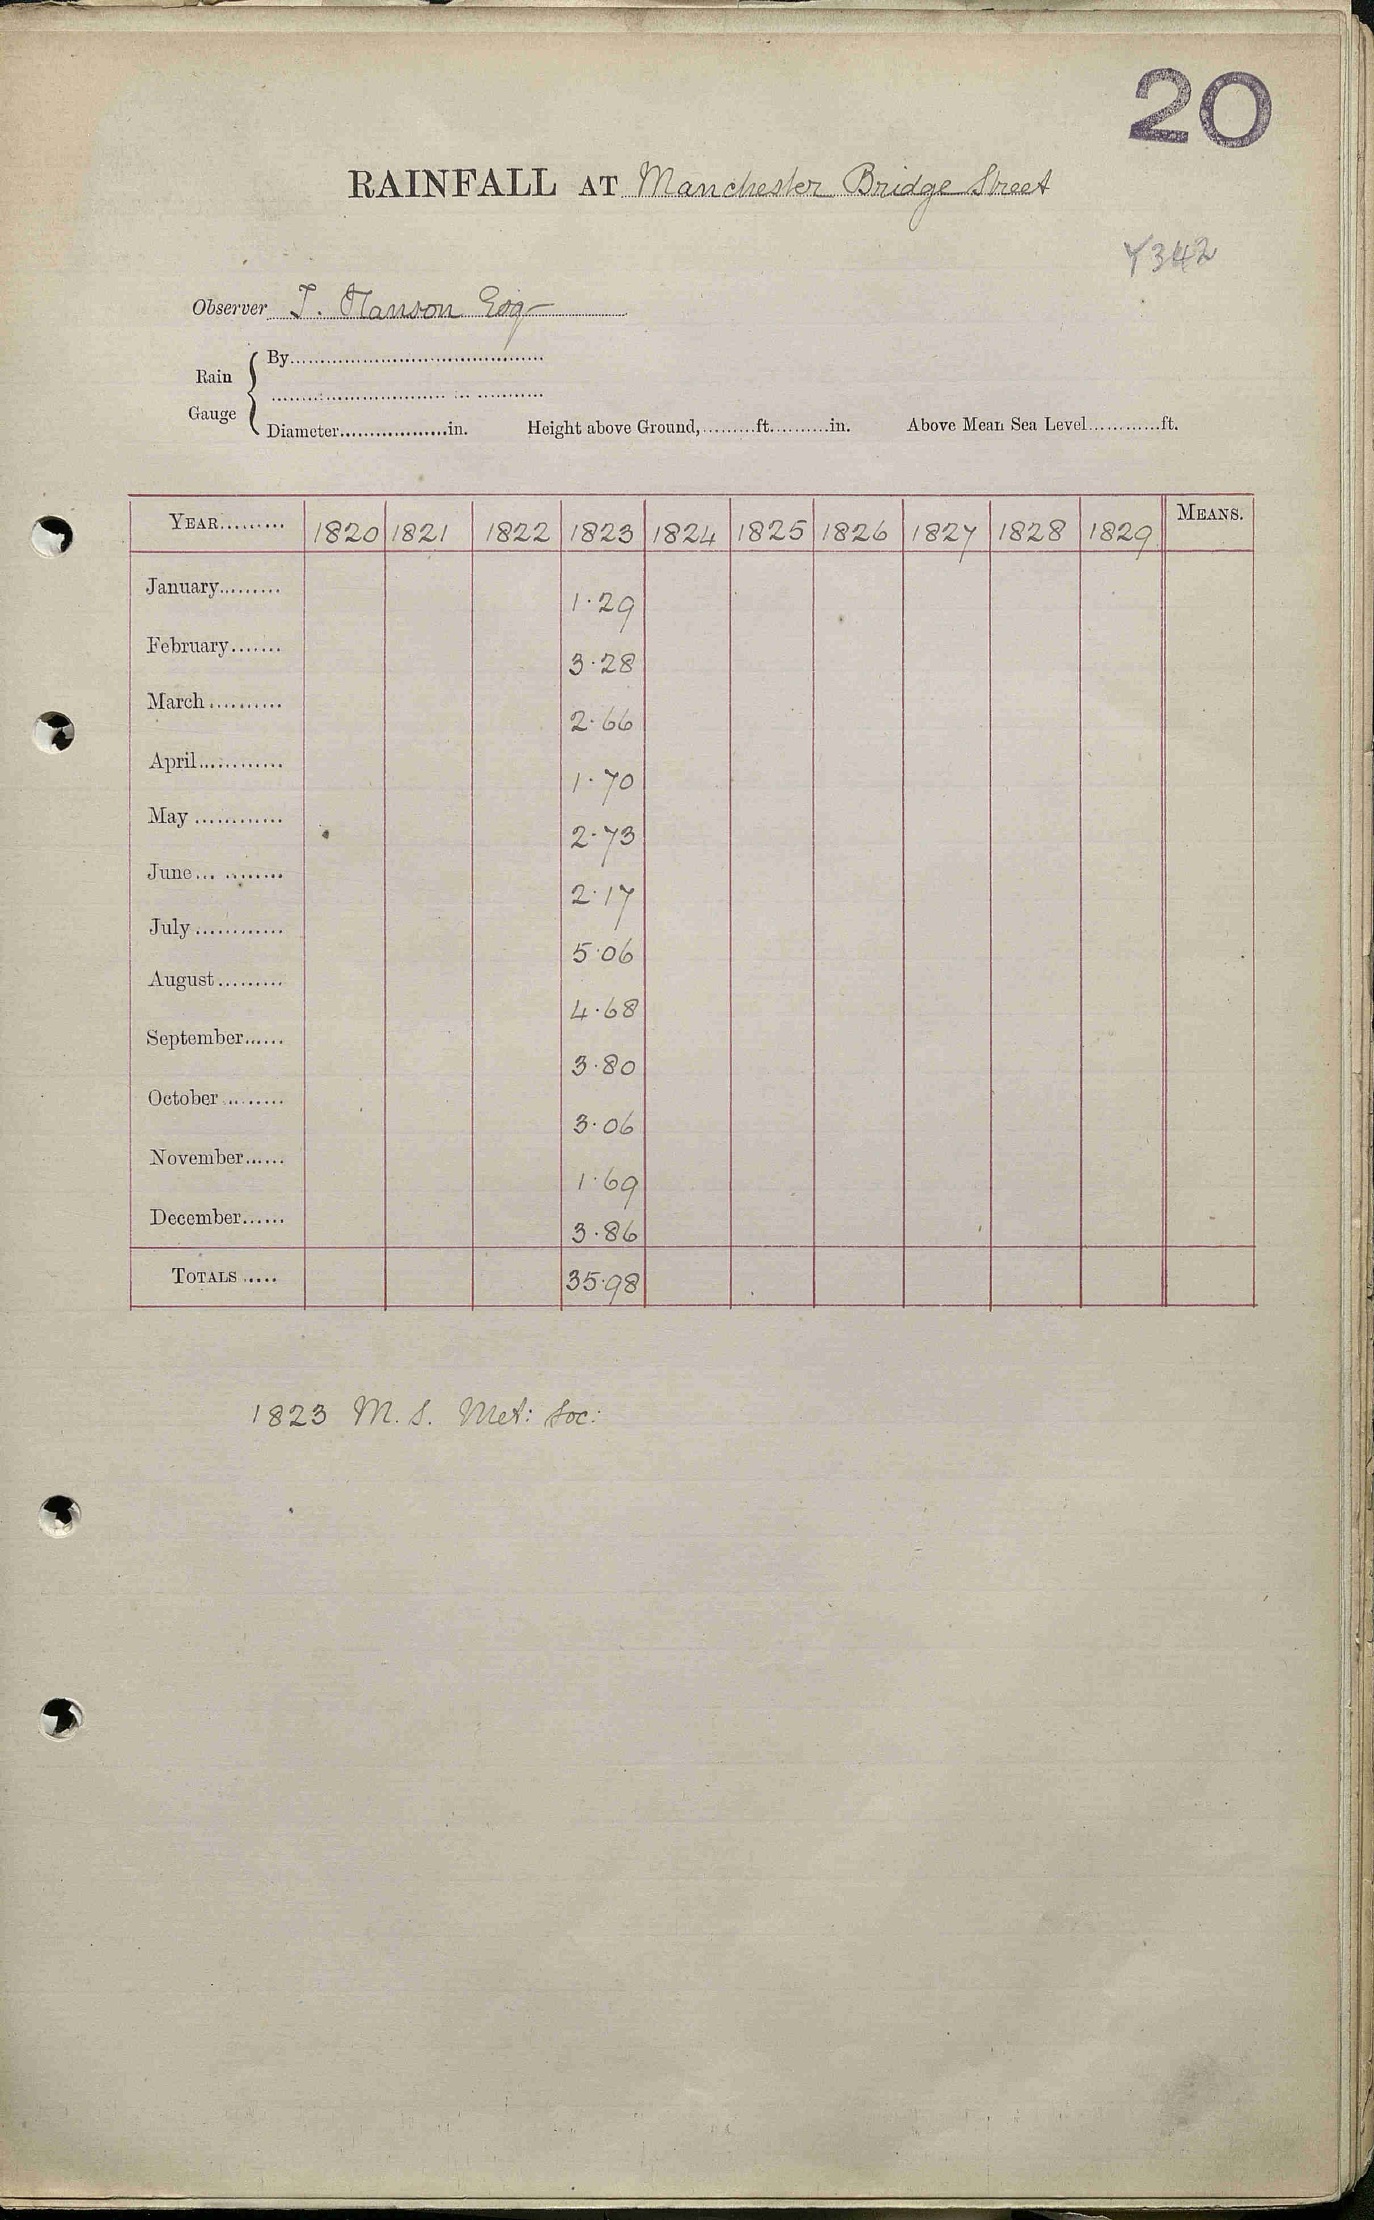 20
RAINFALL AT Manchester Bridge Street
Y342
Observer T. Hanson Esq
Rain Gauge { By
Diameter..................in. Height above Ground,.........ft..........in. Above Mean Sea Level............ft.
YEAR......... 1820 1821 1822 1823 1824 1825 1826 1827 1828 1829 MEANS.
January......... 1.29
February....... 3.28
March.......... 2.66
April............ 1.70
May ............ 2.73
June... ........ 2.17
July ............ 5.06
August......... 4.68
September...... 3.80
October ......... 3.06
November...... 1.69
December...... 3.86
TOTALS ..... 35.98
1823 M. S. Met: Soc: